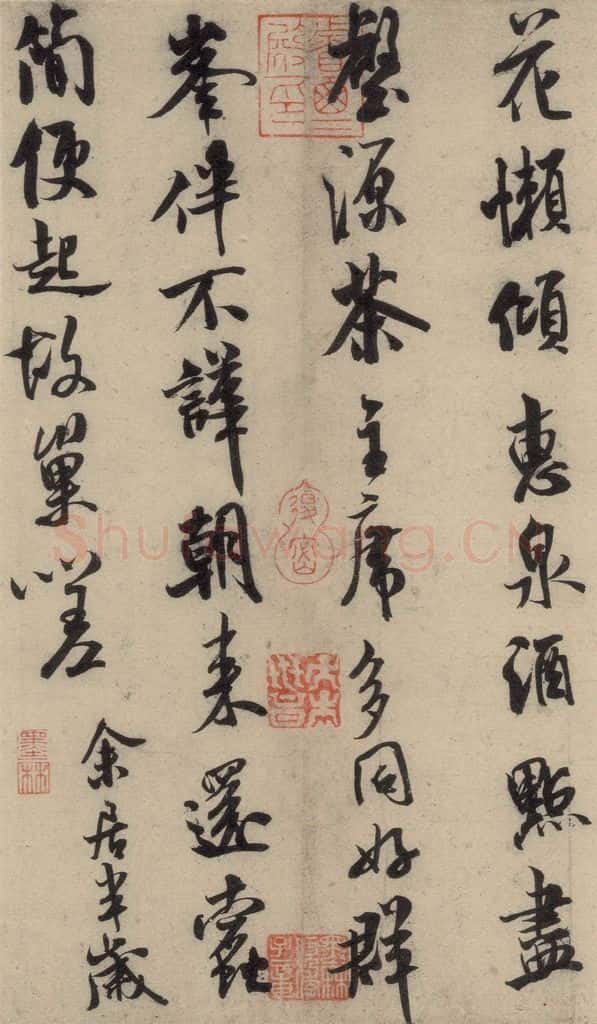 花懶傾惠泉酒點盡
壑源茶主席多同好群
峯伴不譁朝来還蠹
簡便起故巢嗟
余居半歲
墨林
Shufawang.CN